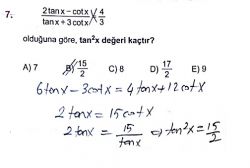 7. (2tanx − cotx)/(tanx + 3cotx) = 4/3
olduğuna göre, tan²x değeri kaçtır?
A) 7 B) 15/2 C) 8 D) 17/2 E) 9
6tanx − 3cotx = 4tanx + 12cotx
2tanx = 15cotx
2tanx = 15/tanx ⇒ tan²x = 15/2